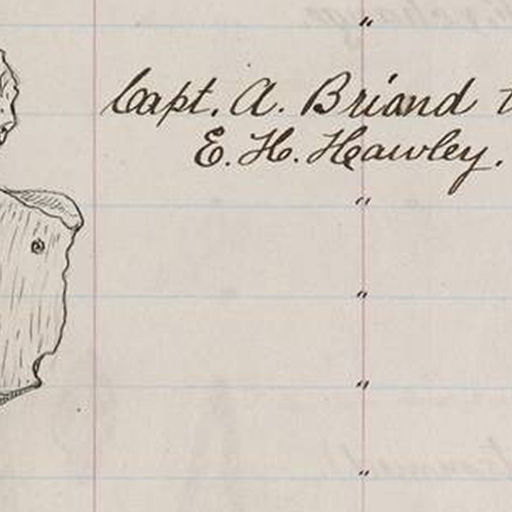 "
Capt. A. Briand
E. H. Hawley.
"
"
"
"